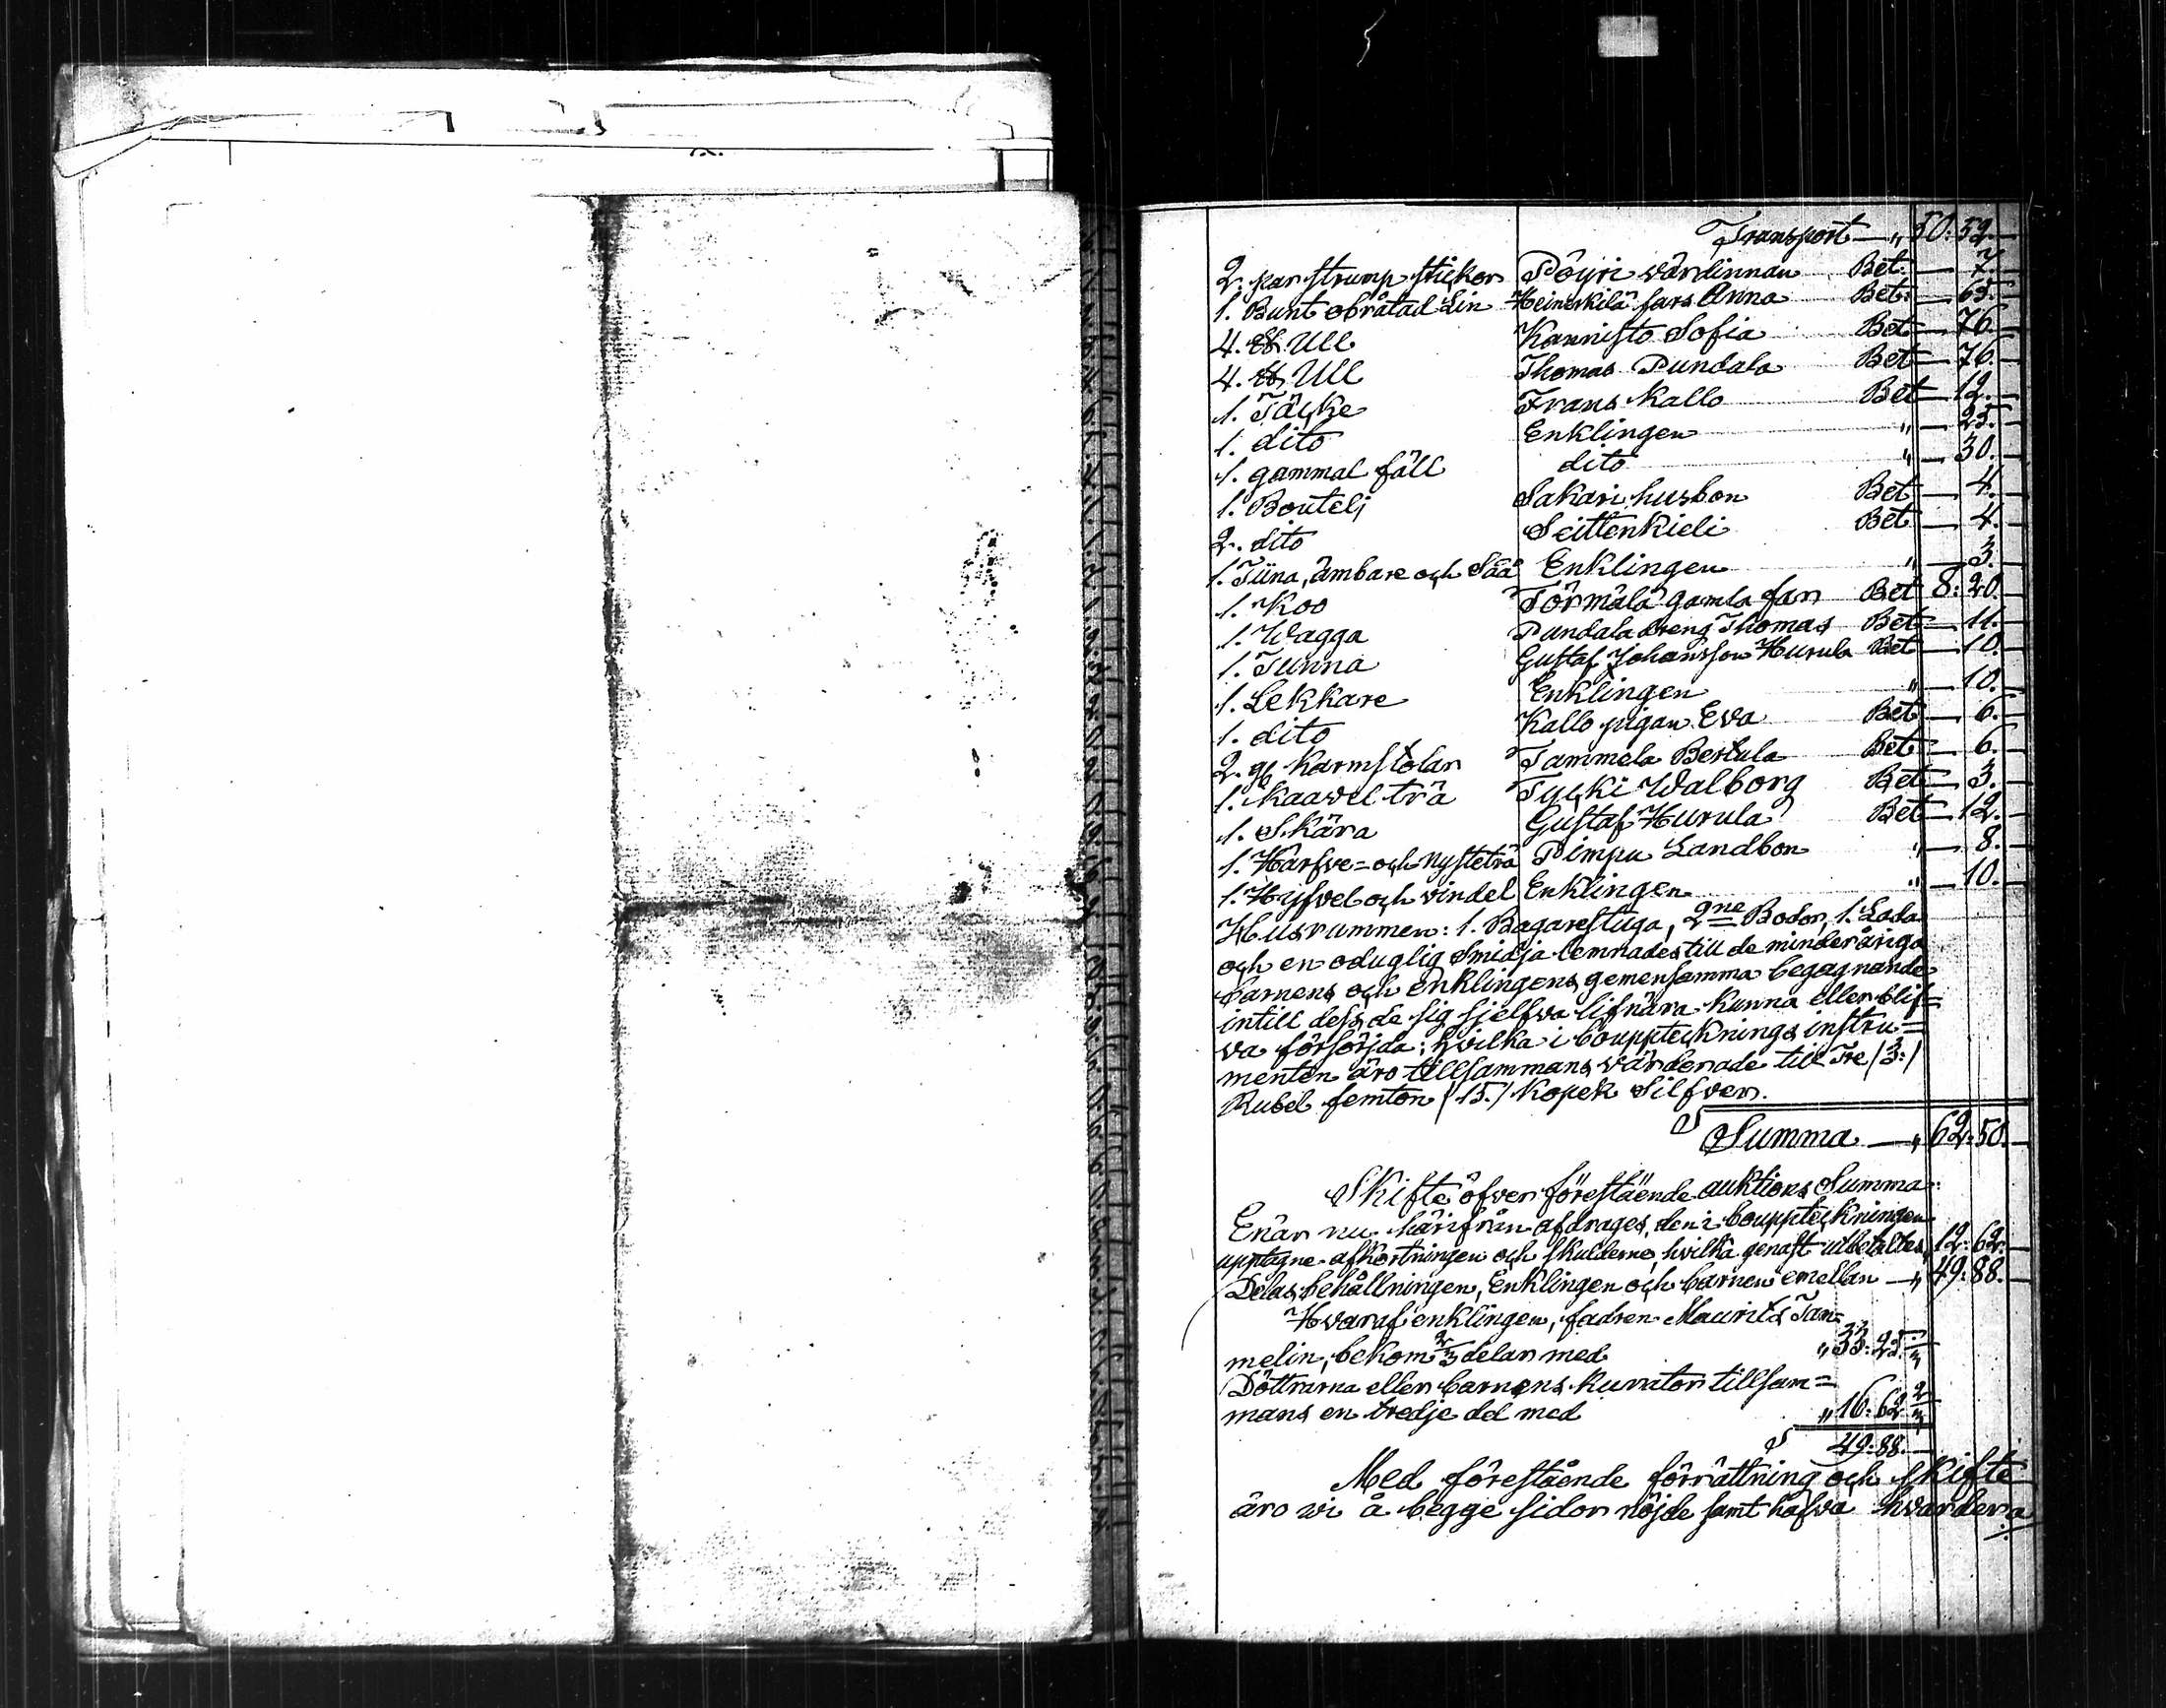 Transport — „ 50: 52. —
2. par strump stickor Pöyri värdinnan Bet. — 7. —
1. Bunt obråtad Lin Heinikkilä fars Anna Bet. — 65. —
4. ℔ Ull Kannisto Sofia Bet — 76. —
4. ℔ Ull Thomas Pundala Bet — 76. —
1. Täcke Frans Kallo Bet — 12. —
1. dito Enklingen „ — 25. —
1. gammal fäll dito „ — 30. —
1. Boutelj Sakari husbon Bet — 4. —
2. dito Seittenkieli Bet — 4. —
1. Tiina, ämbare och Såå Enklingen „ — 3. —
1. Koo Törmälä gamla far Bet 8: 20. —
1. Wagga Pundala dreng Thomas Bet — 11. —
1. Tunna Gustaf Johansson Hurula Bet — 10. —
1. Lekkare Enklingen „ — 10. —
1. dito Kallo pigan Eva Bet — 6. —
2. gl. Karmstolar Tammela Bertula Bet — 6. —
1. Kaavel trä Tycki Walborg Bet — 3. —
1. Skära Gustaf Hurula Bet — 12. —
1. Harfve= och nysteträ Pimpu Landbon „ — 8. —
1. Hyfvel och vindel Enklingen „ — 10. —
Husrummen: 1. Bagarestuga, 2ne Bodor, 1. Lada
och en oduglig Smidja lemnades till de minderåriga
barnens och Enklingens gemensamma begagnande
intill dess de sig sjelfva lifnära kunna eller blif=
va försörjda; hvilka i boupptecknings instru=
menten äro tillsammans värderade till Tre /3:/
Rubel femton /15./ Kopek Silfver.
S Summa — „ 62: 50. —
Skifte öfver förestående auktions Summa:
Enär nu härifrån afdrages, den i bouppteckningen
upptagne afkortningen och skulderne, hvilka genast utbetaltes, 12: 62. —
Delas behållningen, Enklingen och barnen emellan — „ 49: 88. —
Hvaraf enklingen, fadren Maurits Tam=
melin, bekom 2/3 delar med „ 33: 25 1/3
Döttrarna eller barnens kurator tillsam=
mans en tredje del med „ 16: 62 2/3
S 49: 88. —
Med förestående förrättning och skifte
äro wi å begge sidor nöjde samt hafva hvardera